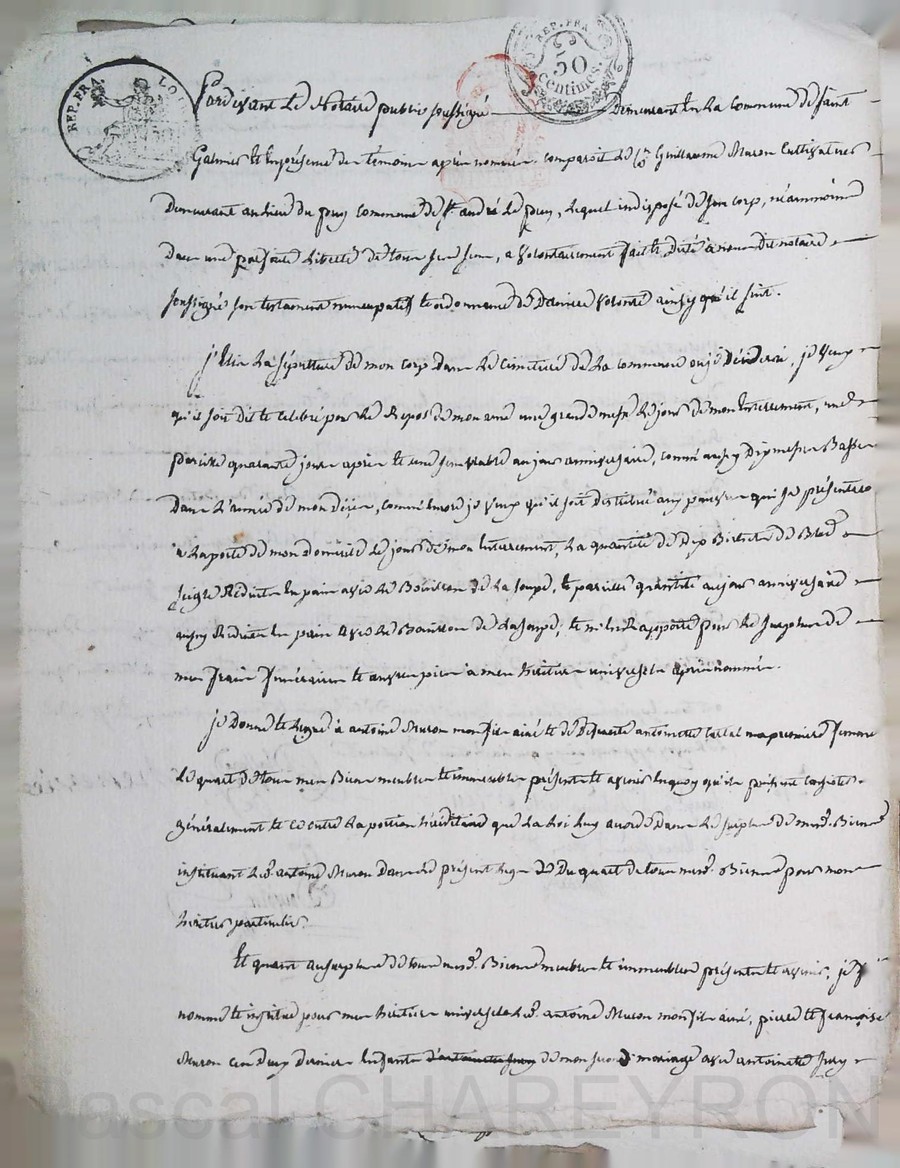 REP. FRA.
REP. FRA.
50
Centimes.
Pardevant Le Notaire public soussigné Demeurant En La Commune de Saint
Galmier Et En présence des témoins après nommés. comparoit le Cn Guillaume Muron Cultivateur
Demeurant au lieu du puy Commune de St. andré Le puy, Lequel indisposé de son corp, néammoins
Dans une parfaite Liberté de tous ses sens, a Volontairement fait et Dicté à nous Dit notaire
soussigné son testament nuncupatif et ordonnance de Derniere Volonté ainsy qu'il suit.
j'Elis La sépulture de mon corp Dans Le Cimetiere de La commune ou je Déciderai, je Veux
qu'il soit Dit et celebré pour Le Repos de mon ame une grande messe le jour de mon Enterrement, une
pareille quarante jours après et une semblable au jour anniversaire, comme aussy Dix messes Basses
Dans L'année de mon Décès, comme encore je Veux qu'il soit Distribué aux pauvres qui se présenteront
à La porte de mon domicile le jour de mon Enterrement, La quantité de Dix Bichets de Bled
seigle Réduits En pain avec Le Bouillon de La soupe, et pareille quantité au jour anniversaire
aussy Réduits En pain avec Le Bouillon de La soupe, et m'en Rapporte pour Le surplus de
mes frais funéraires et œuvres pies à mes héritiers universels après nommés.
je Donne et Legue à antoine Muron mon fils ainé et de Deffunte antoinette mapremiere femme
Le quart de tous mes Biens meubles et immeubles présents et avenir En quoy qu'ils puissent consister
généralement et ce outre La portion héréditaire que La Loi Luy accorde Dans Le surplus de mesd. Biens
instituant Led. antoine Muron Dans Le présent Legs du quart de tous mesd. Biens pour mon
héritier particulier.
Et quant au surplus de tous mesd. Biens meubles et immeubles présents et avenir, je
nomme et institue pour mes héritiers universels Led. antoine Muron mon fils ainé, pierre et françoise
Muron ces Deux Derniers Enfants de mon second mariage avec antoinette
Pascal CHAREYRON